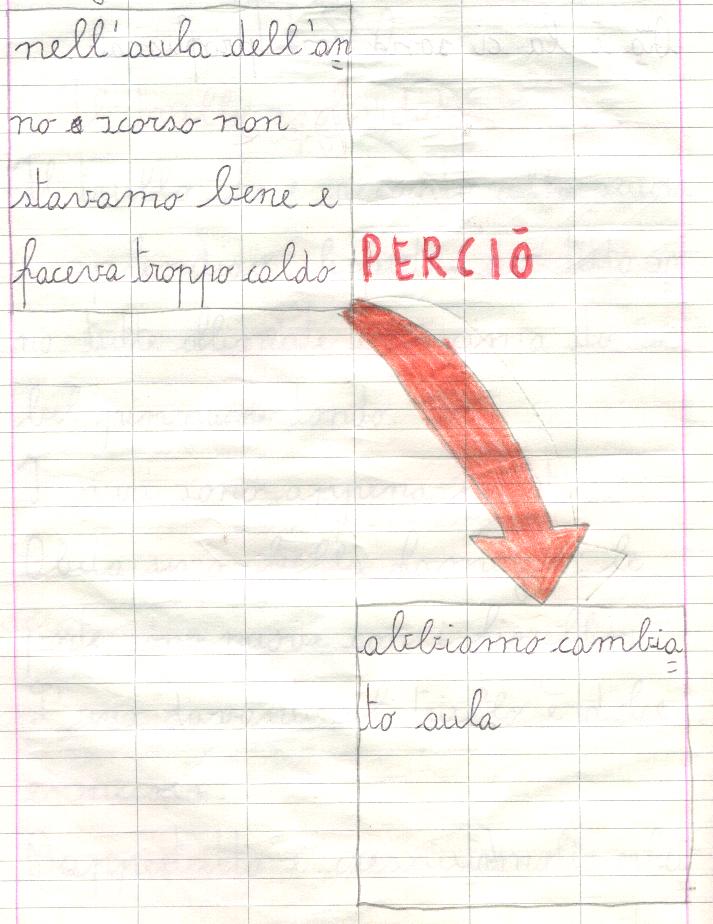 nell'aula dell'an=
no scorso non
stavamo bene e
faceva troppo caldo
PERCIÒ
abbiamo cambia=
to aula